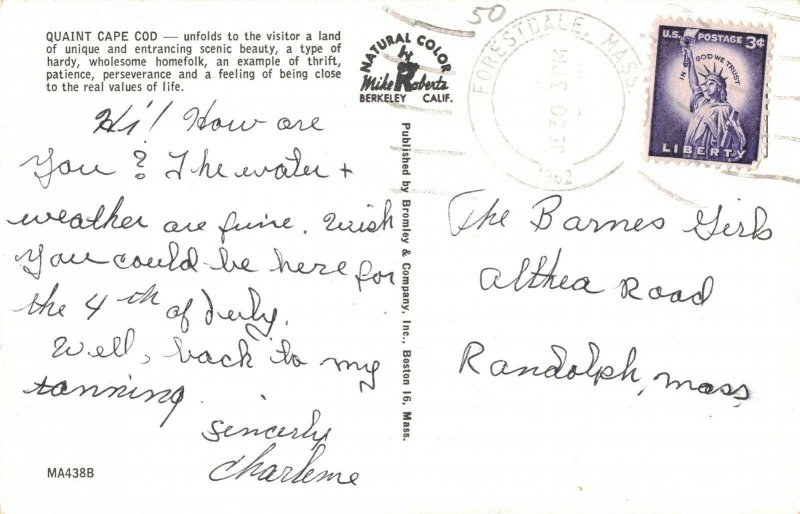 QUAINT CAPE COD — unfolds to the visitor a land
of unique and entrancing scenic beauty, a type of
hardy, wholesome homefolk, an example of thrift,
patience, perseverance and a feeling of being close
to the real values of life.
Hi! How are
You? The water +
weather are fine. Wish
You could be here for
the 4th of July.
Well, back to my
tanning.
Sincerly
Charlene
MA438B
NATURAL COLOR
by
Mike Roberts
BERKELEY CALIF.
Published by Bromley & Company, Inc., Boston 16, Mass.
50
FORESTDALE, MASS.
30
1962
U.S. POSTAGE 3¢
IN GOD WE TRUST
LIBERTY
The Barnes Girls
Althea Road
Randolph, Mass,